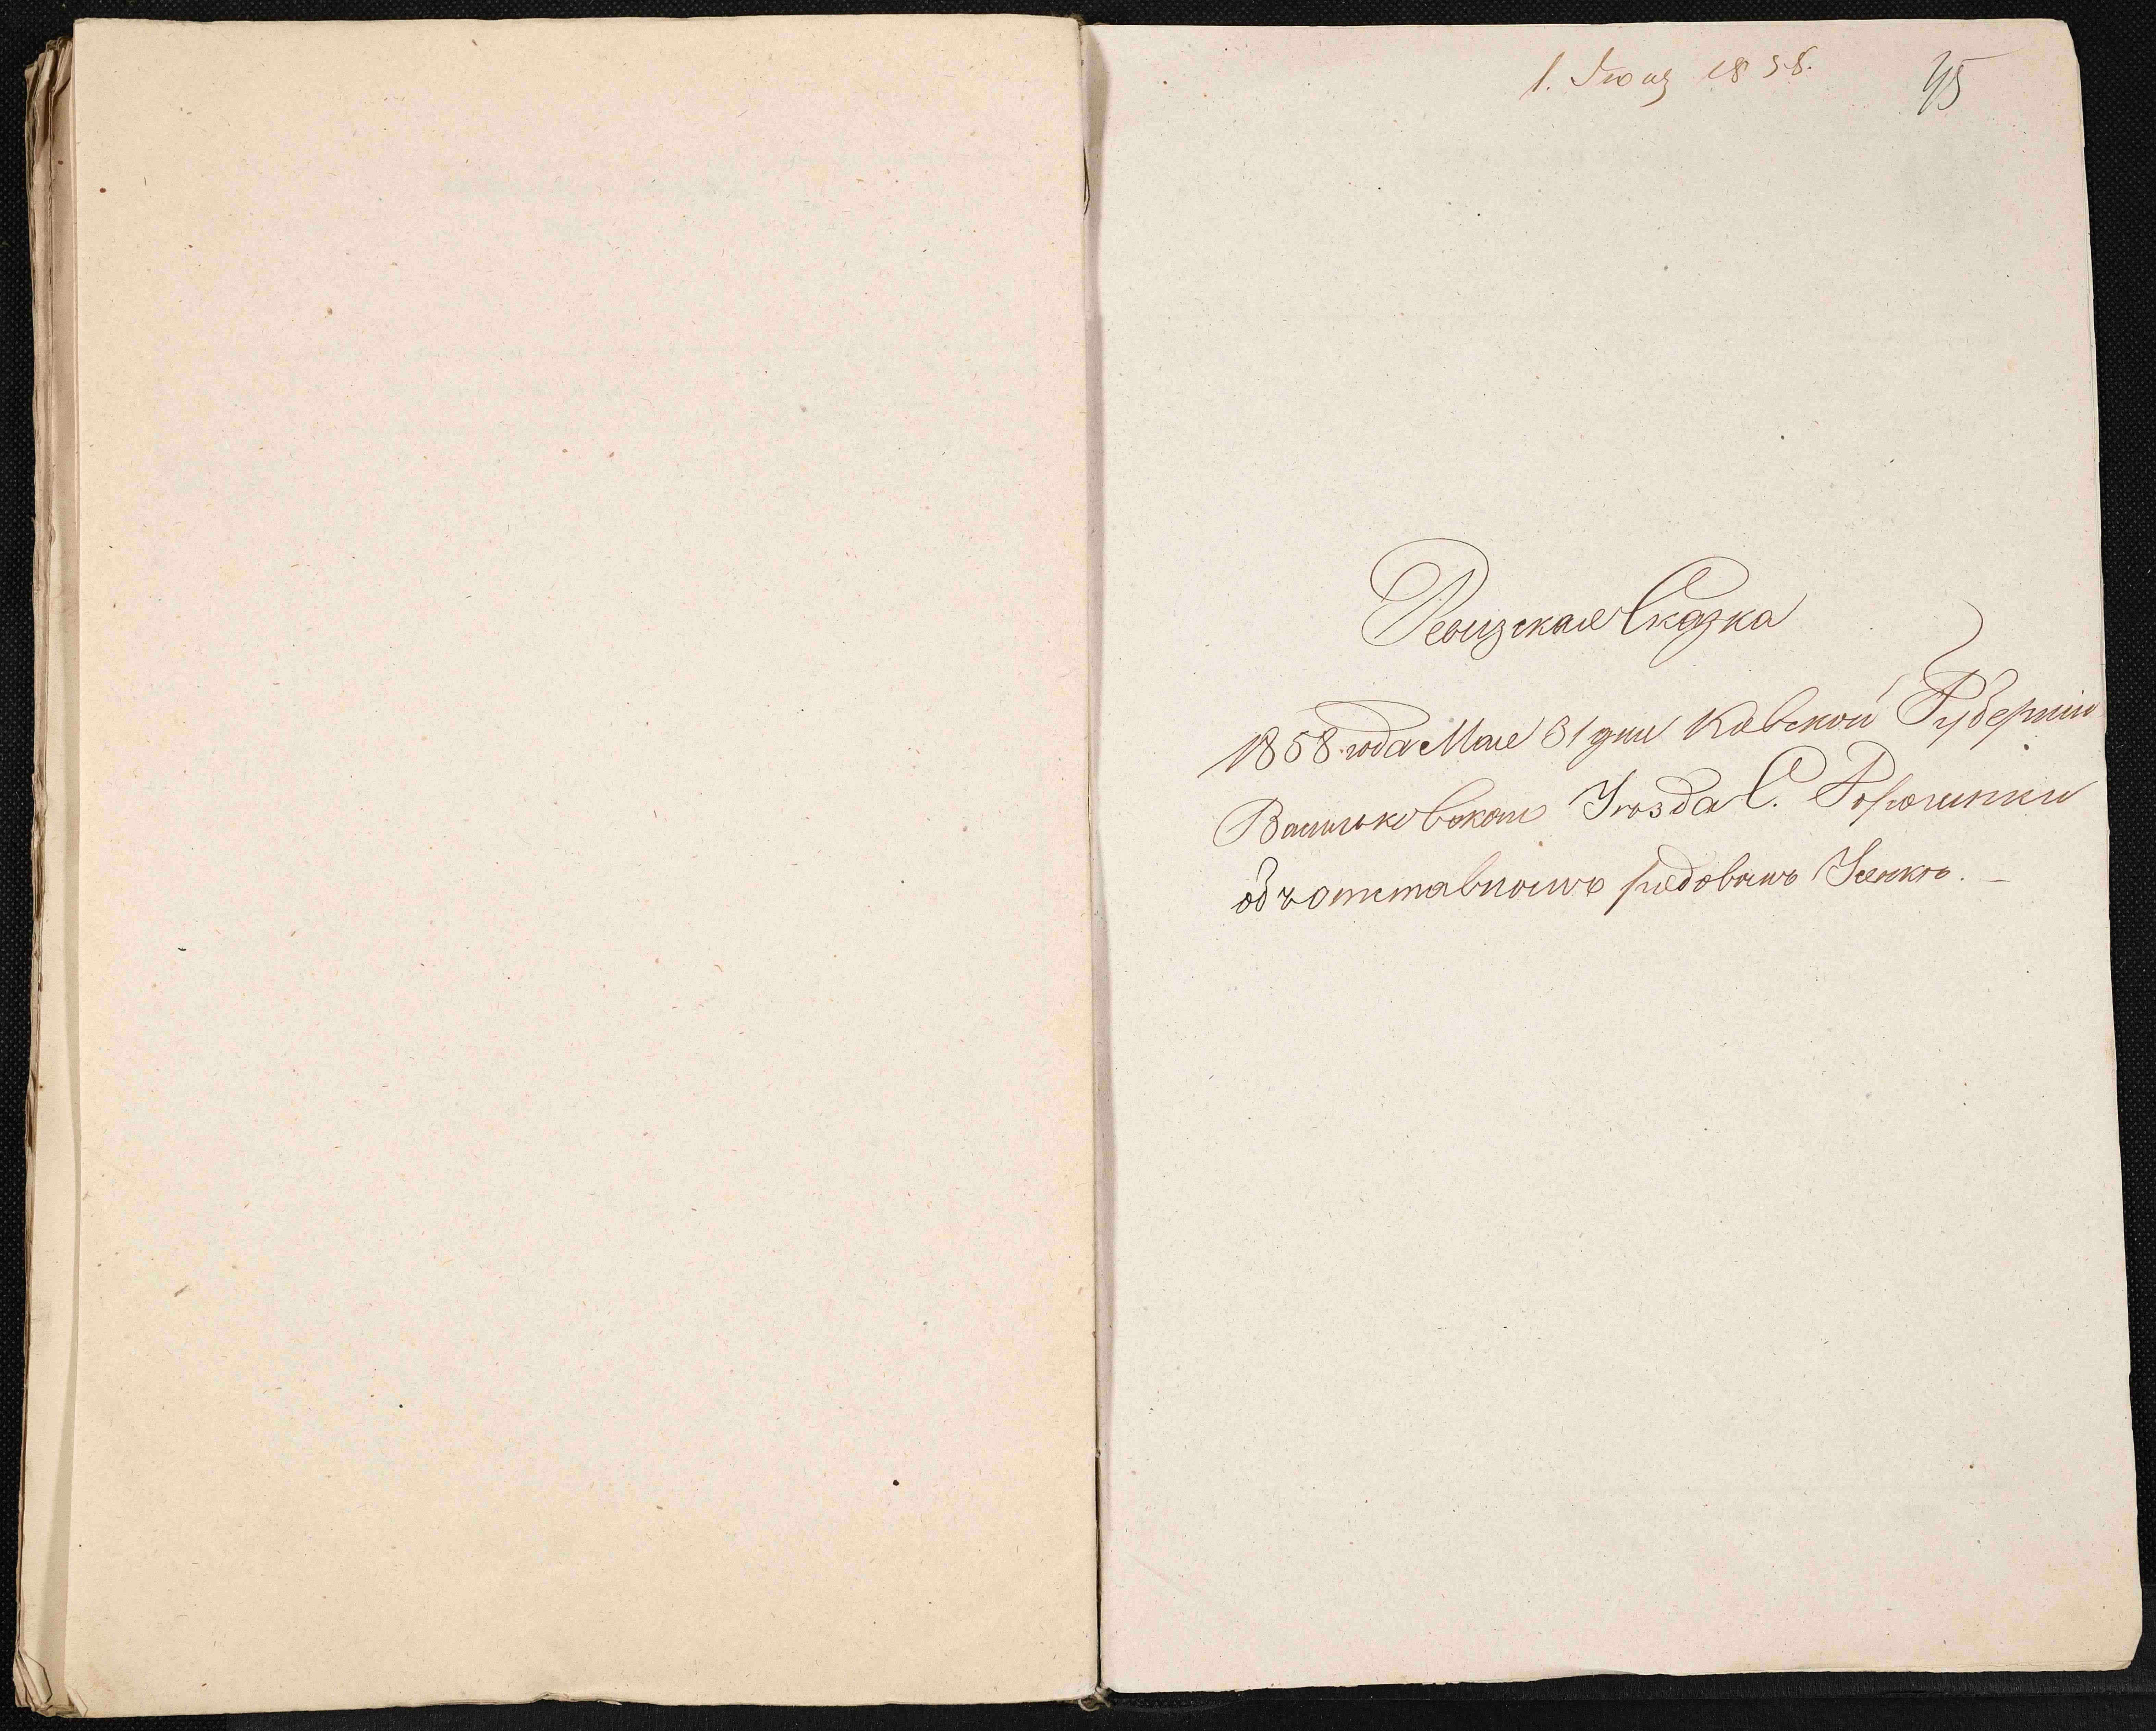 1. Июня 1858.
45
Ревизская Сказка
1858 года Мая 31 дня Киевской Губерніи
Васильковскаго Уезда С.
объ отставномъ рядовомъ